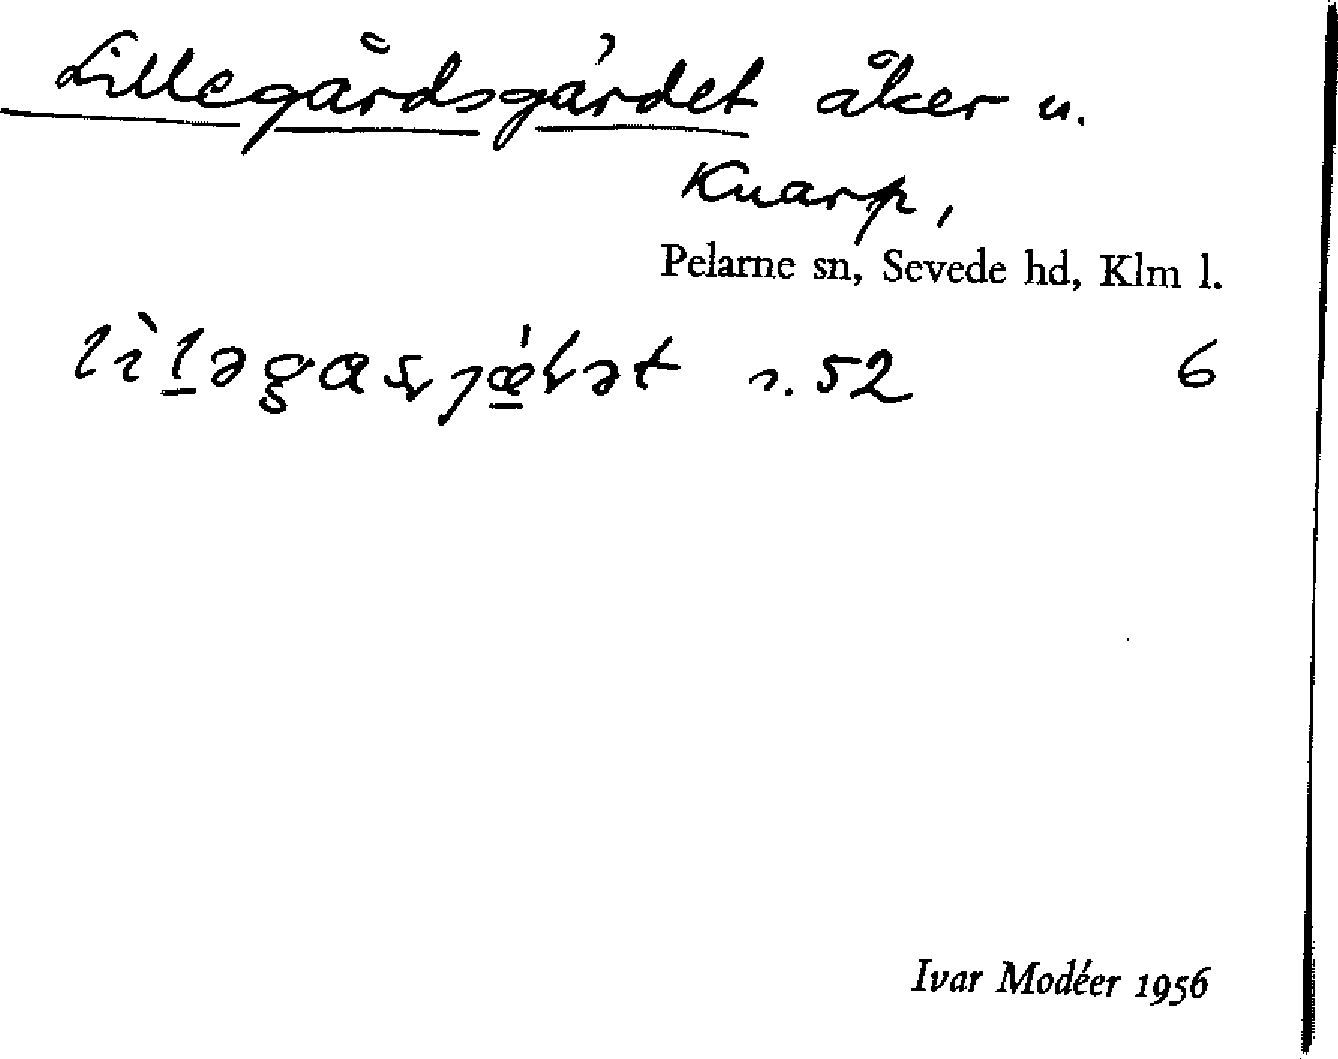 Lillegårdsgärdet åker u.
Knarp,
Pelarne sn, Sevede hd, Klm l.
s. 52 6
Ivar Modéer 1956